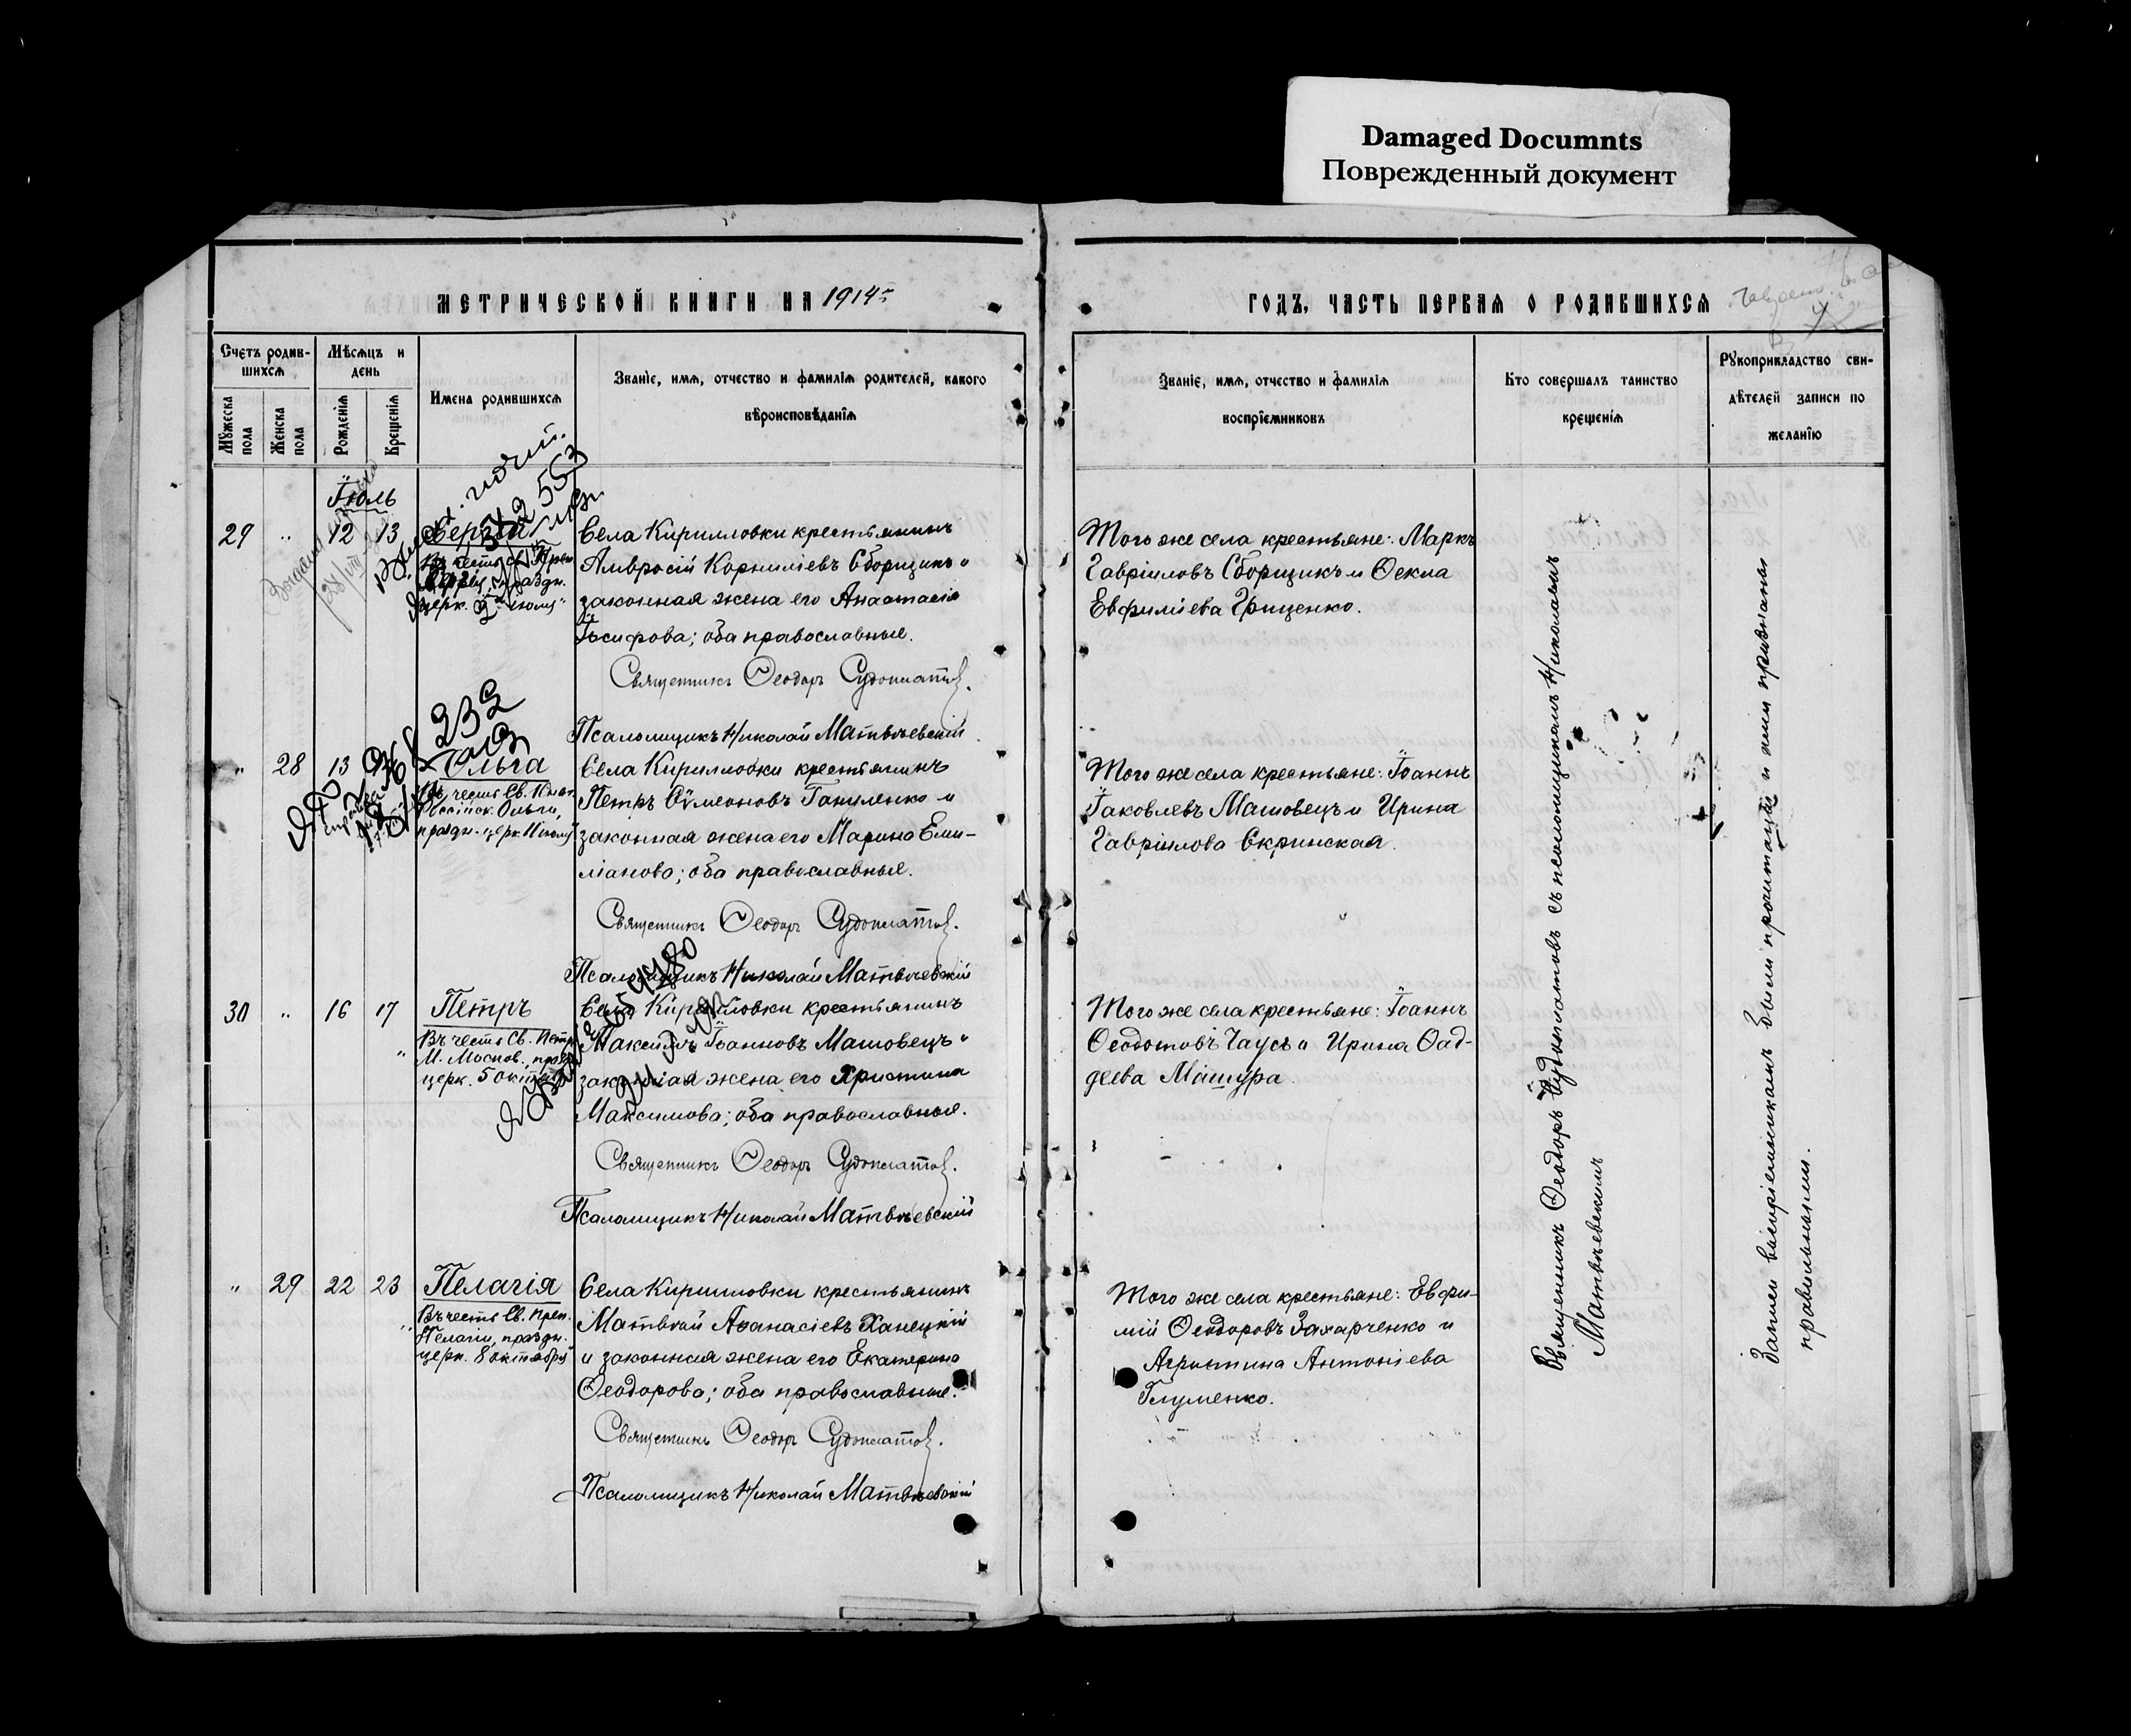 Damaged Documnts
Поврежденный документ
МЕТРИЧЕСКОЙ КНИГИ НА 1914 г.
Счетъ родив-
шихся
Мѣсяцъ и
день
Мужеска
пола
Женска
пола
Рожденія
Крещенія
Имена родившихся
Званіе, имя, отчество и фамилія родителей, какого
вѣроисповѣданія
Іюль
29 " 12 13 Сергій
церк.
Села Кирилловки крестьянинъ
Амвросій Корниліевъ Сборщикъ и
законная жена его Анастасія
Іосифова; оба православные.
Священникъ Ѳеодоръ Судоплатовъ.
Псаломщикъ Николай Матвѣевскій.
" 28 13 Ольга
Въ честь Св. Княг.
Россійск. Ольги,
праздн. церк. 11 іюля"
232
Села Кирилловки крестьянинъ
Петръ Сѵмеоновъ Гапиленко и
законная жена его Марина Еми-
ліанова; оба православные.
Священникъ Ѳеодоръ Судоплатовъ.
Псаломщикъ Николай Матвѣевскій
30 " 16 17 Петръ
Въ честь Св. Петра
М. Москов., празд.
церк. 5 октября
Села Кирилловки крестьянинъ
Максимъ Іоанновъ Машовецъ и
законная жена его Христина
Максимова; оба православные.
Священникъ Ѳеодоръ Судоплатовъ.
Псаломщикъ Николай Матвѣевскій
" 29 22 23 Пелагія
Въ честь Св. Преп.
Пелагіи, праздн.
церк. 8 октября"
Села Кирилловки крестьянинъ
Матвѣй Аѳанасіевъ Ханецкій
и законная жена его Екатерина
Ѳеодорова; оба православные.
Священникъ Ѳеодоръ Судоплатовъ.
Псаломщикъ Николай Матвѣевскій
ГОДЪ, ЧАСТЬ ПЕРВАЯ О РОДИВШИХСЯ
Званіе, имя, отчество и фамилія
воспріемниковъ
Кто совершалъ таинство
крещенія
Рукоприкладство сви-
дѣтелей записи по
желанію
Того же села крестьяне: Маркъ
Гавріиловъ Сборщикъ и Ѳекла
Евфиміева Гриценко.
Того же села крестьяне: Іоаннъ
Іаковлевъ Машовецъ и Ирина
Гавріилова Скринская.
Того же села крестьяне: Іоаннъ
Ѳеодотовъ Чаусъ и Ирина Ѳад-
деева Мащура.
Того же села крестьяне: Евфи-
мій Ѳеодоровъ Захарченко и
Агриппина Антоніева
Глуменко.
Священникъ Ѳеодоръ Судоплатовъ съ псаломщикомъ Николаемъ
Матвѣевскимъ
Записи воспріемникамъ были прочитаны и ими признаны
правильными.